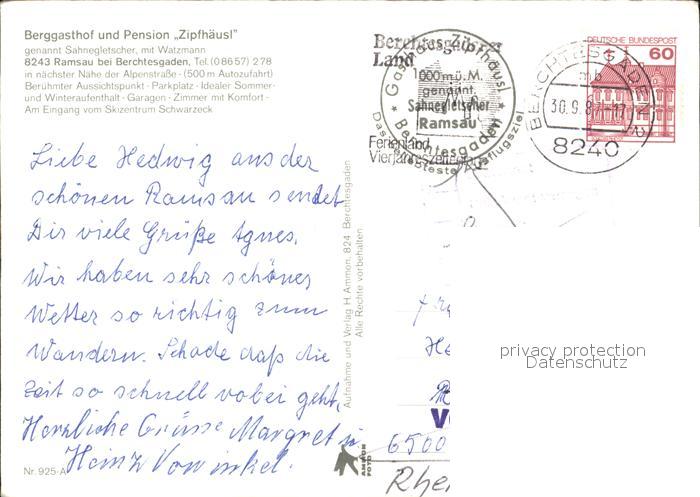 Berggasthof und Pension „Zipfhäusl"
genannt Sahnegletscher, mit Watzmann
8243 Ramsau bei Berchtesgaden, Tel. (08657) 278
in nächster Nähe der Alpenstraße · (500 m Autozufahrt)
Berühmter Aussichtspunkt · Parkplatz · Idealer Sommer-
und Winteraufenthalt · Garagen · Zimmer mit Komfort ·
Am Eingang vom Skizentrum Schwarzeck
Liebe Hedwig aus der
schönen Ramsau sendet
Dir viele Grüße Agnes.
Wir haben sehr schönes
Wetter so richtig zum
Wandern. Schade daß die
Zeit so schnell vobei geht,
Herzliche Grüsse Margret u.
Heinz Vowinkel.
Nr. 925-A
Aufnahme und Verlag H. Ammon, 824 Berchtesgaden
Alle Rechte vorbehalten
AMMON
FOTO
Berchtesgadener
Land
Ferienland
Gasthof Zipfhäusl
1000 m ü. M.
genannt
Sahnegletscher
Ramsau
Berchtesgaden
Das beliebteste Ausflugsziel
DEUTSCHE BUNDESPOST
60
BERCHTESGADEN 2
mb
30.9.87-17
8240
6500
privacy protection
Datenschutz